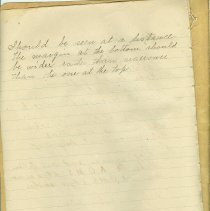 Should be seen at a distance
The margin at the bottom should
be wider rather than narrower
than the one at the top.